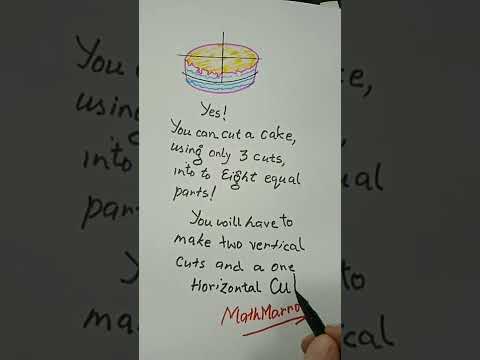 Yes!
You can cut a cake,
using only 3 cuts,
into to Eight equal
parts!
You will have to
make two vertical
cuts and a one
Horizontal Cu
MathMarro